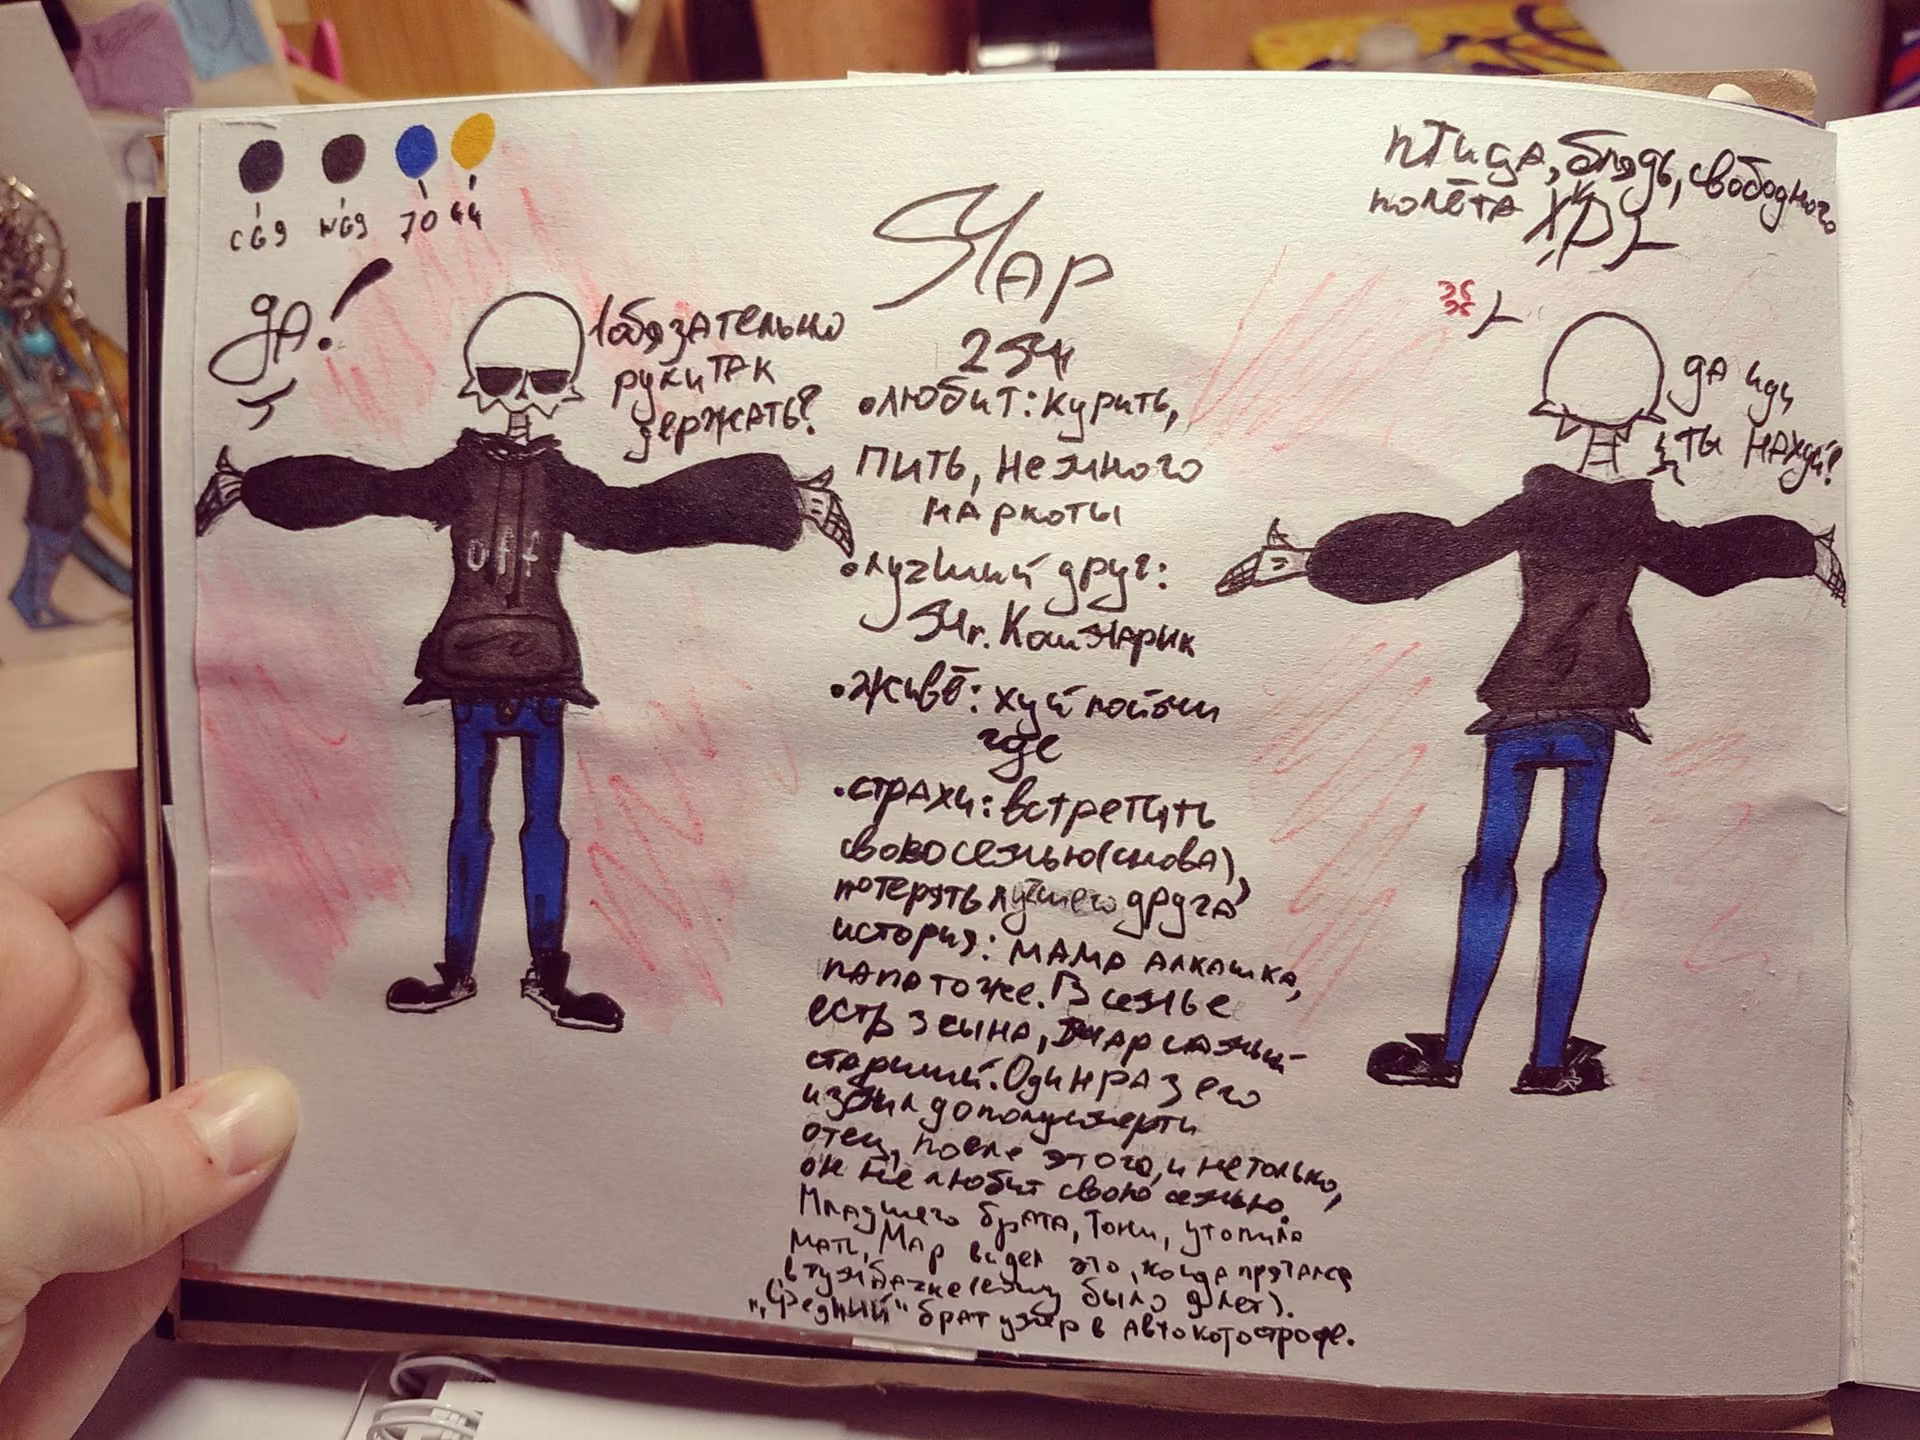 CG9 WG9 70 44
ДА!
1 обязательно
руки так
держать?
off
Мар
25ч
•любит: курить,
пить, немного
маркоты
•лучший друг:
Mr. Кошмарик
•живё: хуй пойми
где
•страхи: встретить
свою семью (снова),
потерять лучшего друга
история: мама алкашка,
папа тоже. В семье
есть 3 сына, Мар самый
старший. Один раз его
избил до полусмерти
отец, после этого, и не только,
он не любит свою семью.
Младшего брата, Тони, утопила
мать, Мар видел это, когда прятался
в тумбачке (ему было 9 лет).
"Средний" брат умер в автокотострофе.
птица, блядь, свободного
полёта XD
да иди
ты нахуй?